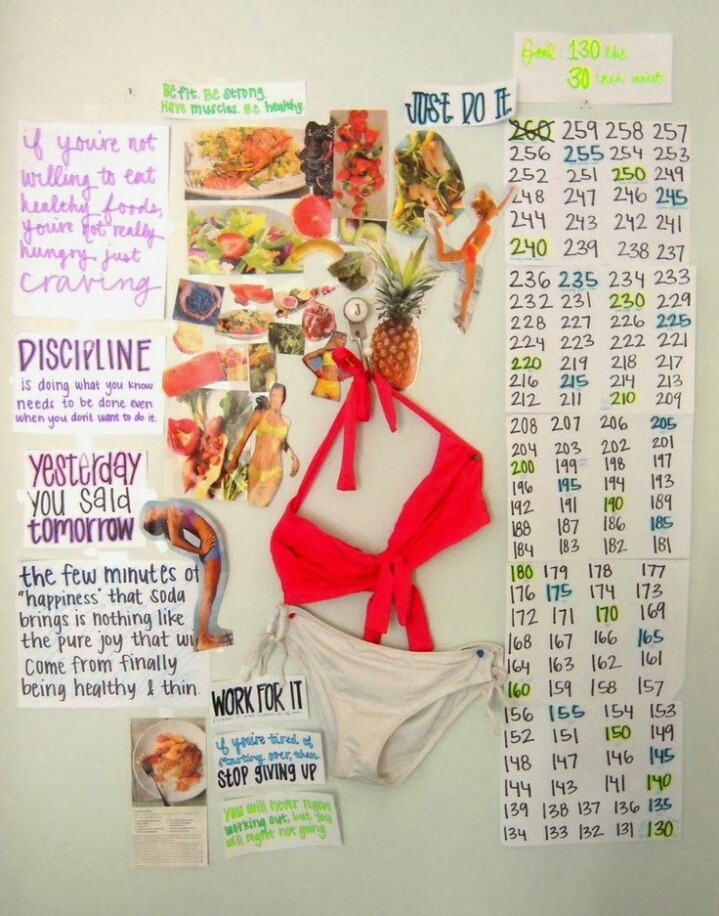 Goal: 130 lbs
30 inch waist
Be fit. Be strong.
Have muscles. Be healthy.
JUST DO IT
if you're not
willing to eat
healthy foods,
you're not really
hungry just
craving
DISCIPLINE
is doing what you know
needs to be done even
when you don't want to do it.
yesterday
you said
tomorrow
the few minutes of
"happiness" that soda
brings is nothing like
the pure joy that
come from finally
being healthy & thin.
J
WORK FOR IT
if you're tired of
starting over, then
STOP GIVING UP
You will never regret
working out, but you
will regret not going.
260 259 258 257
256 255 254 253
252 251 250 249
248 247 246 245
244 243 242 241
240 239 238 237
236 235 234 233
232 231 230 229
228 227 226 225
224 223 222 221
220 219 218 217
216 215 214 213
212 211 210 209
208 207 206 205
204 203 202 201
200 199 198 197
196 195 194 193
192 191 190 189
188 187 186 185
184 183 182 181
180 179 178 177
176 175 174 173
172 171 170 169
168 167 166 165
164 163 162 161
160 159 158 157
156 155 154 153
152 151 150 149
148 147 146 145
144 143 141 140
139 138 137 136 135
134 133 132 131 130